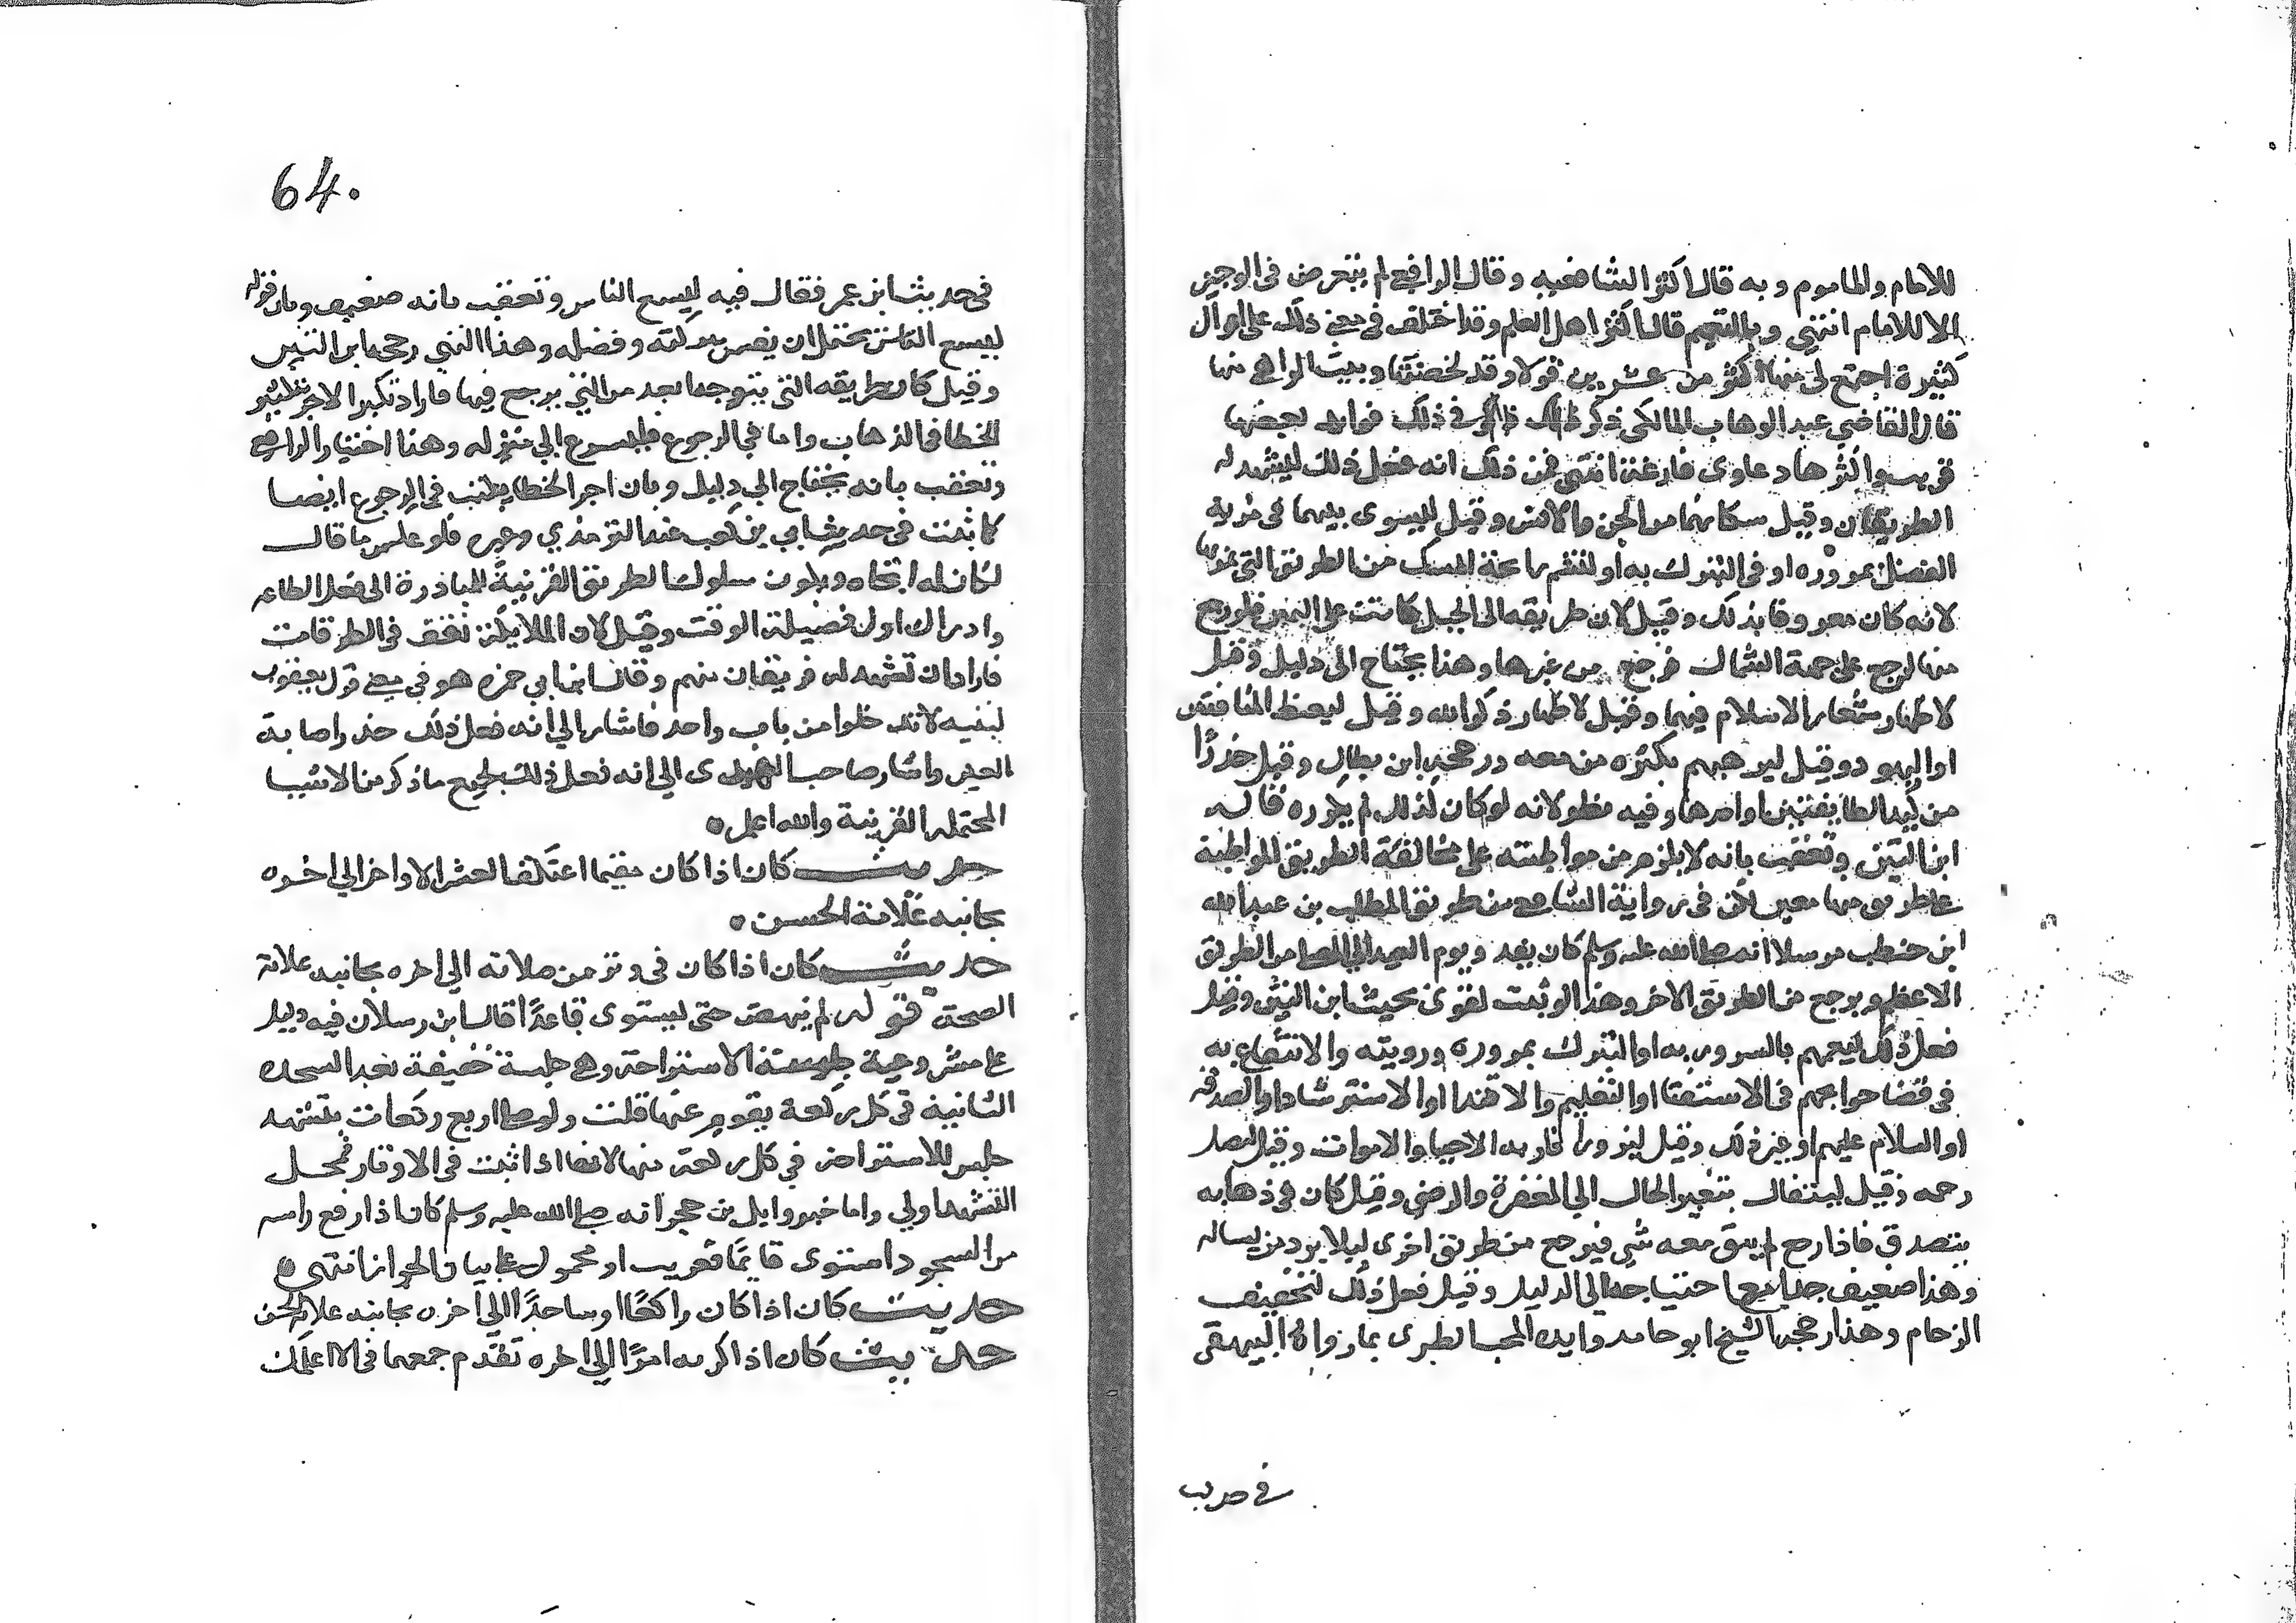 للامام والماموم وبه قال اكثر الشافعيه وقال الرافعي لم يتعرض في الوجيز
الا للامام انتهي وبالتعميم قال اكثر اهل العلم وقد اختلف في معني ذلك على اقوال
كثيرة اجتمع لي منها اكثر من عشرين قولا وقد لخصتها وبينت الواهي منها
قال القاضي عبد الوهاب المالكي ذكر في ذلك فوايد بعضها
قريب واكثرها دعاوى فارغة انتهى فمن ذلك انه فعل ذلك ليشهد له
الطريقان وقيل سكانهما من الجن والانس وقيل ليسوى بينهما في مزية
الفضل بمروره او في التبرك به او لتشم رائحة المسك من الطريق التي يمر بها
لانه كان معروفا بذلك وقيل لان طريقه الى المصلى كانت على اليمين فلو رجع
منها لرجع على جهة الشمال فرجع من غيرها وهذا يحتاج الى دليل وقيل
لاظهار شعار الاسلام فيهما وقيل لاظهار ذكر الله وقيل ليغيظ المنافقين
او اليهود وقيل ليرهبهم بكثرة من معه ورجحه ابن بطال وقيل حذرًا
من كيد الطايفتين او احدهما وفيه نظر لانه لو كان كذلك لم يكرره قاله
ابن التين وتعقب بانه لا يلزم من مواظبته على مخالفة الطريق المواظبة
على طريق منها معين لكن في رواية الشافعي من طريق المطلب بن عبد الله
ابن حنطب مرسلا انه صلى الله عليه وسلم كان يغدو يوم العيد الى المصلى من الطريق
الاعظم ويرجع من الطريق الاخر وهذا لو ثبت لقوى بحث ابن التين وقيل
فعل ذلك ليعمهم بالسرور به او التبرك بمروره ورويته والانتفاع به
في قضا حوايجهم في الاستفتا او التعليم والاقتدا او الاسترشاد او الصدقة
او السلام عليهم او غير ذلك وقيل ليزور اقاربه الاحيا والاموات وقيل ليصل
رحمه وقيل ليتفال بتغير الحال الي المغفرة والرضى وقيل كان في ذهابه
يتصدق فاذا رجع لم يبق معه شي فيرجع من طريق اخرى ليلا يرد من يساله
وهذا ضعيف جدا مع احتياجه الى الدليل وقيل فعل ذلك لتخفيف
الزحام وهذا رجحه الشيخ ابو حامد وايده المحب الطبرى بما رواه البيهقى
في حديث
64.
في حديث ابن عمر فقال فيه ليسع الناس وتعقب بانه ضعيف وبان قوله
ليسع الناس يحتمل ان يفسر ببركته وفضله وهذا الذي رجحه ابن التين
وقيل كان طريقه التي يتوجه ابعد من التي يرجع فيها فاراد تكثير الاجر بتكثير
الخطا في الذهاب واما في الرجوع فليسرع الي منزله وهذا اختيار الرافعي
وتعقب بانه يحتاج الي دليل وبان اجر الخطا يكتب في الرجوع ايضا
كما ثبت في حديث ابي بن كعب عند الترمذي وغيره فلو عكس ما قال
لكان له اتجاه ويكون سلوك الطريق القريبة للمبادرة الى فعل الطاعه
وادراك اول فضيلة الوقت وقيل لان الملايكة تقف في الطرقات
فاراد ان تشهد له فريقان منهم وقال ابن ابي جمره هو في معني قول يعقوب
لبنيه لا تدخلوا من باب واحد فاشار الي انه فعل ذلك حذر اصابة
العين واشار صاحب الهدى الي انه فعل ذلك لجميع ما ذكر من الاشيا
المحتملة القريبة والله اعلم
حديث كان اذا كان مقيما اعتكف العشر الاواخر الي اخره
بجانبه علامة الحسن
حديث كان اذا كان في وتر من صلاته الي اخره بجانبه علامة
الصحة قوله لم ينهض حتى يستوى قاعدًا قال ابن رسلان فيه دليل
على مشروعية جلسة الاستراحة وهي جلسة خفيفة بعد السجدة
الثانية في كل ركعة يقوم عنها قلت ولو صلى اربع ركعات بتشهد
جلس للاستراحة في كل ركعة منها لانها اذا ثبت في الاوتار فمحل
التشهد اولي واما خبر وايل بن حجر انه صلى الله عليه وسلم كان اذا رفع راسه
من السجود استوى قايمًا فغريب او محمول على بيان الجواز انتهى
حديث كان اذا كان راكعًا او ساجدًا الي اخره بجانبه علامة الحسن
حديث كان اذا كربه امرًا الي اخره تقدم جمعهما في الاعلان